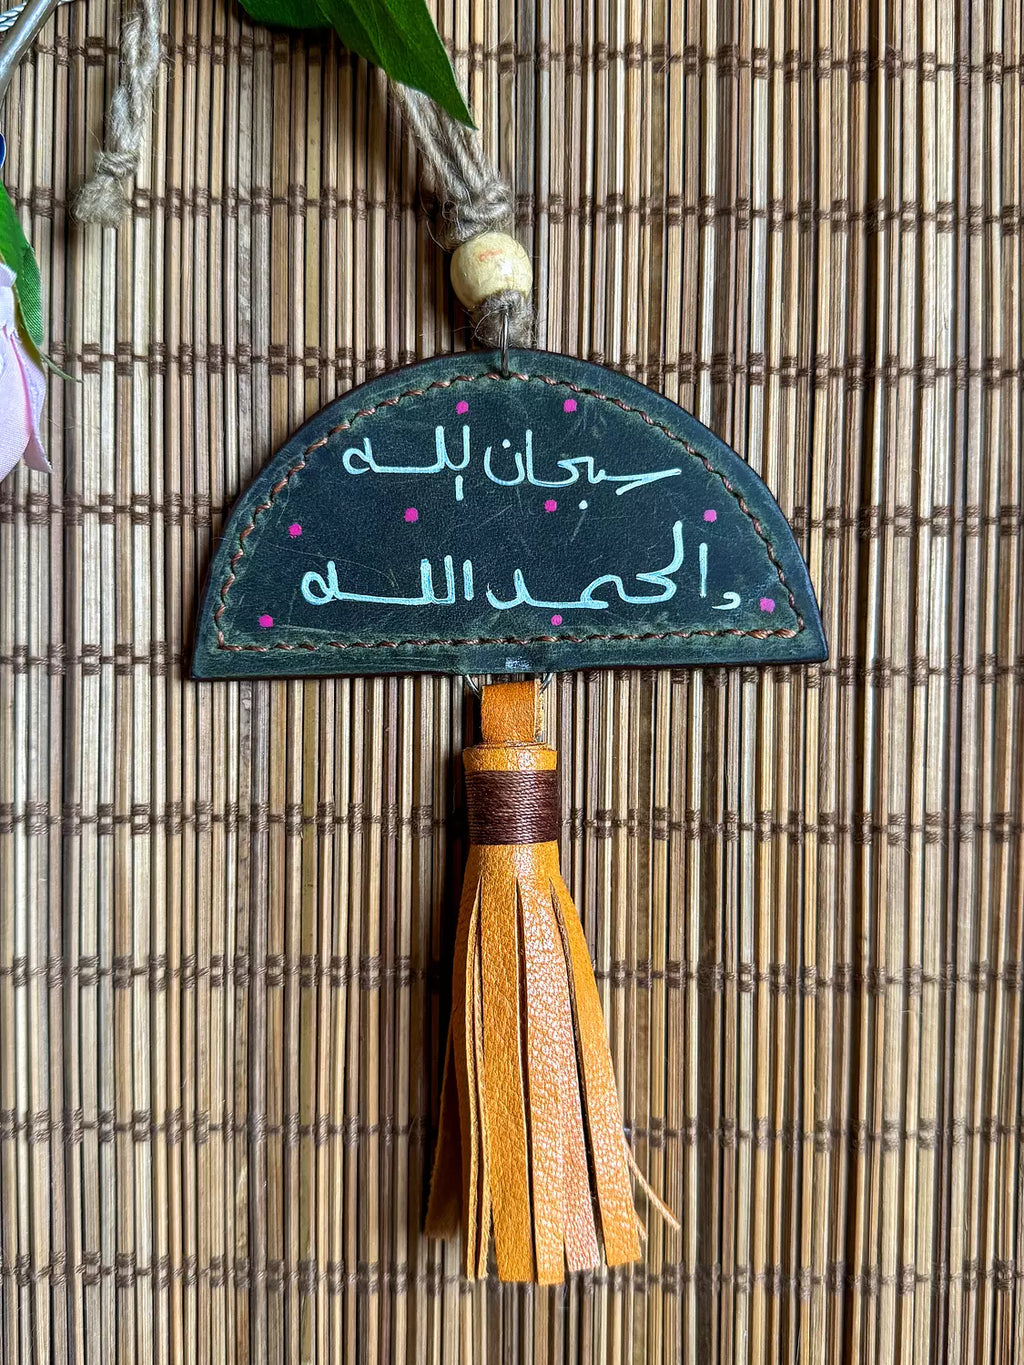 سبحان الله
والحمد الله